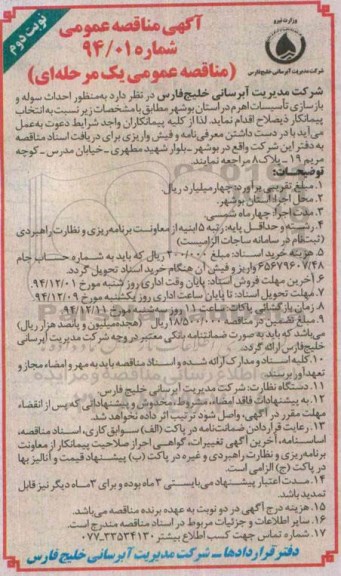 نوبت دوم
وزارت نیرو
شرکت مدیریت آبرسانی خلیج‌فارس
آگهی مناقصه عمومی
شماره ۹۴/۰۱
(مناقصه عمومی یک مرحله‌ای)
شرکت مدیریت آبرسانی خلیج‌فارس در نظر دارد به‌منظور احداث سوله و
بازسازی تأسیسات اهرم در استان بوشهر مطابق با مشخصات زیر نسبت به انتخاب
پیمانکار ذیصلاح اقدام نماید. لذا از کلیه پیمانکاران واجد شرایط دعوت به‌عمل
می‌آید با در دست داشتن معرفی‌نامه و فیش واریزی برای دریافت اسناد مناقصه
به دفتر این شرکت واقع در بوشهر ـ بلوار شهید مطهری ـ خیابان مدرس ـ کوچه
مریم ۱۹ ـ پلاک ۸ مراجعه نمایند.
توضیحات:
۱. مبلغ تقریبی برآورد: چهار میلیارد ریال.
۲. محل اجرا: استان بوشهر.
۳. مدت اجرا: چهار ماه شمسی.
۴. رشته و حداقل پایه: رتبه ۵ ابنیه از معاونت برنامه‌ریزی و نظارت راهبردی
(ثبت‌نام در سامانه ساجات الزامیست)
۵. هزینه خرید اسناد: مبلغ ۲۰۰/۰۰۰ ریال که باید به شماره حساب جام
۶۵۶۷۹۶۰۷/۴۸ واریز و فیش آن هنگام خرید اسناد تحویل گردد.
۶. آخرین مهلت فروش اسناد: پایان وقت اداری روز شنبه مورخ ۹۴/۱۲/۰۱
۷. مهلت تحویل اسناد: تا پایان ساعت اداری روز یکشنبه مورخ ۹۴/۱۲/۰۹
۸. زمان بازگشائی پاکات: ساعت ۱۱ روز سه‌شنبه مورخ ۹۴/۱۲/۱۱
۹. مبلغ تضمین در مناقصه ۱۸/۵۰۰/۰۰۰ ریال (هجده میلیون و پانصد هزار ریال)
می‌باشد که باید به صورت ضمانتنامه بانکی معتبر در وجه شرکت مدیریت آبرسانی
خلیج‌فارس ارائه گردد.
۱۰. کلیه اسناد و مدارک ارائه شده و اسناد مناقصه باید به مهر و امضاء مجاز و
تعهدآور برسند.
۱۱. دستگاه نظارت: شرکت مدیریت آبرسانی خلیج فارس.
۱۲. به پیشنهادات فاقد امضاء، مشروط، مخدوش و پیشنهاداتی که پس از انقضاء
مهلت مقرر در آگهی، واصل شود ترتیب اثر داده نخواهد شد.
۱۳. رعایت قرار دادن ضمانت‌نامه در پاکت (الف) سوابق کاری، اسناد مناقصه،
اساسنامه، آخرین آگهی تغییرات، گواهی احراز صلاحیت پیمانکار از معاونت
برنامه‌ریزی و نظارت راهبردی و غیره در پاکت (ب) پیشنهاد قیمت و آنالیز بها
در پاکت (ج) الزامی است.
۱۴. مدت اعتبار پیشنهاد می‌بایستی ۳ ماه بوده و برای ۳ ماه دیگر نیز قابل
تمدید باشد.
۱۵. هزینه درج آگهی در دو نوبت به عهده برنده مناقصه می‌باشد.
۱۶. سایر اطلاعات و جزئیات مربوط در اسناد مناقصه مندرج است.
۱۷. شماره تماس جهت کسب اطلاع بیشتر ۳۳۵۳۴۱۳۰-۰۷۷
دفتر قراردادها ـ شرکت مدیریت آبرسانی خلیج فارس